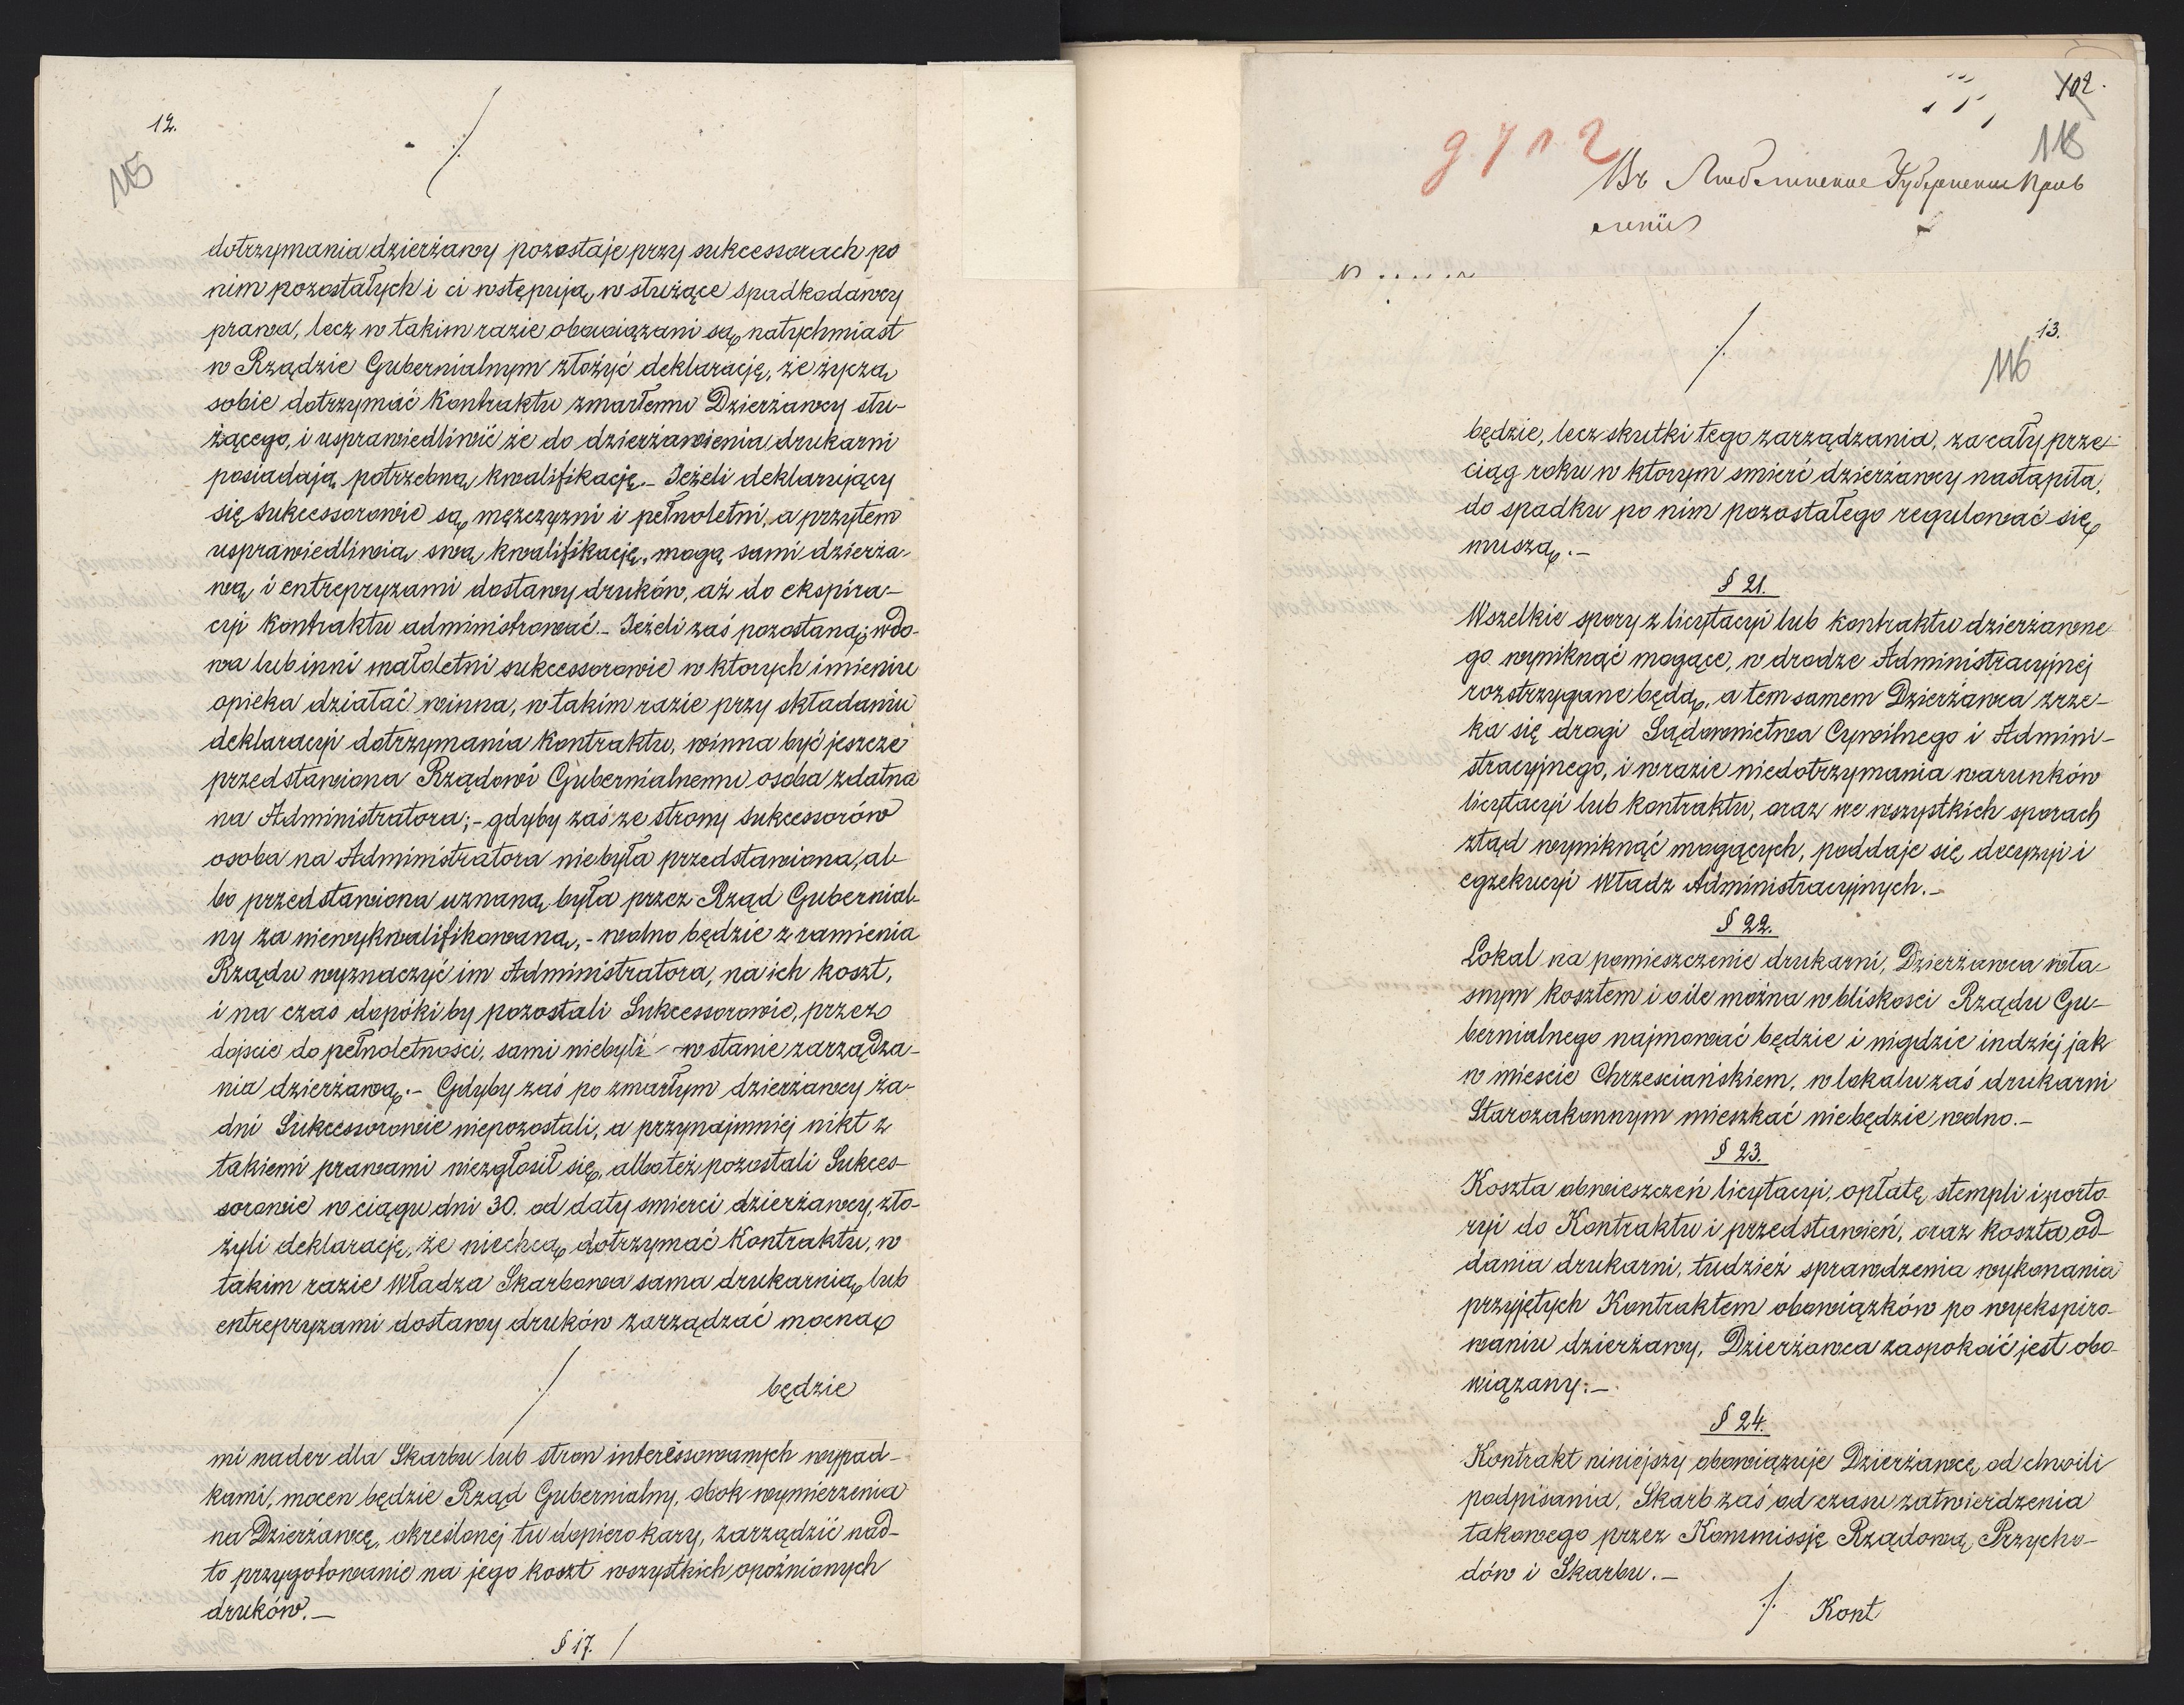 12.
115
dotrzymania dzierżawy pozostaje przy sukcessorach po
nim pozostałych i ci wstępują w służące spadkodawcy
prawa, lecz w takim razie obowiązani są natychmiast
w Rządzie Gubernialnym złożyć deklarację, że życzą
sobie dotrzymać Kontraktu zmarłemu Dzierżawcy słu-
żącego, i usprawiedliwić że do dzierżawienia drukarni
posiadają potrzebną kwalifikację.- Jeżeli deklarujący
się sukcessorowie są mężczyzni i pełnoletni, a przytem
usprawiedliwią swą kwalifikację, mogą sami dzierża-
wą i entrepryzami dostawy druków, aż do ekspira-
cyi Kontraktu administrować.- Jeżeli zaś pozostaną: wdo-
wa lub inni małoletni sukcessorowie w ktorych imieniu
opieka działać winna, w takim razie przy składaniu
deklaracyi dotrzymania Kontraktu, winna być jeszcze
przedstawiona Rządowi Gubernialnemu osoba zdatna
na Administratora;- gdyby zaś ze strony sukcessorów
osoba na Administratora niebyła przedstawiona, al-
bo przedstawiona uznaną była przez Rząd Gubernial-
ny za niewykwalifikowaną,- wolno będzie z ramienia
Rządu wyznaczyć im Administratora, na ich koszt,
i na czas dopóki by pozostali Sukcessorowie, przez
dojscie do pełnoletności, sami niebyli w stanie zarządza-
nia dzierżawą.- Gdyby zaś po zmarłym dzierżawcy ża-
dni Sukcessorowie niepozostali, a przynajmniej nikt z
takiemi prawami niezgłosił się, albo też pozostali Sukces-
sorowie w ciągu dni 30. od daty smierci dzierżawcy, zło-
żyli deklarację, że niechcą dotrzymać Kontraktu, w
takim razie Władza Skarbowa sama drukarnią lub
entrepryzami dostawy druków zarządzać mocną
będzie
mi nader dla Skarbu lub stron interessowanych wypad-
kami, mocen będzie Rząd Gubernialny, obok wymierzenia
na Dzierżawcę, określonej tu dopiero kary, zarządzić nad-
to przygotowanie na jego koszt wszystkich opóźnionych
druków.-
§ 17.
102.
118
Въ Люблинское Губернское Прав
леніе
13.
116
będzie, lecz skutki tego zarządzania, za cały prze-
ciąg roku w ktorym smierć dzierżawcy nastąpiła,
do spadku po nim pozostałego regulować się
muszą.-
§ 21.
Wszelkie spory z licytacyi lub kontraktu dzierżawne-
go wyniknąć mogące, w drodze Administracyjnej
rozstrzygane będą, a tem samem Dzierżawca zrze-
ka się drogi Sądownictwa Cywilnego i Admini-
stracyjnego, i w razie niedotrzymania warunków
licytacyi lub kontraktu, oraz we wszystkich sporach
ztąd wyniknąć mogących, poddaje się decyzyi i
egzekucyi Władz Administracyjnych.-
§ 22.
Lokal na pomieszczenie drukarni, Dzierżawca wła-
snym kosztem i o ile można w bliskosci Rządu Gu-
bernialnego najmować będzie i nigdzie indziej jak
w miescie Chrzesciańskiem, w lokalu zaś drukarni
Starozakonnym mieszkać niebędzie wolno.-
§ 23.
Koszta obwieszczeń licytacyi, opłatę stempli i porto-
ryi do Kontraktu i przedstawień, oraz koszta od-
dania drukarni, tudzież sprawdzenia wykonania
przyjętych Kontraktem obowiązków po wyekspiro-
waniu dzierżawy, Dzierżawca zaspokoić jest obo-
wiązany.-
§ 24.
Kontrakt niniejszy obowiązuje Dzierżawcę od chwili
podpisania, Skarb zaś od czasu zatwierdzenia
takowego przez Kommissję Rządową Przycho-
dów i Skarbu.-
Kont